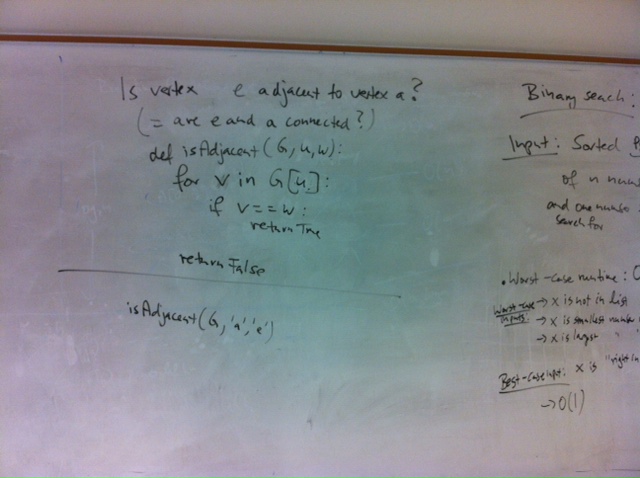 Is vertex e adjacent to vertex a?
(= are e and a connected?)
def isAdjacent(G, u, w):
for v in G[u]:
if v == w:
return True
return False
isAdjacent(G, 'a', 'e')
Binary seach:
Input: Sorted
of n
and one number
search for
• Worst-case runtime:
Worst-case inputs: → x is not in list
→ x is smallest number
→ x is largest "
Best-case input: x is "right in
→ O(1)